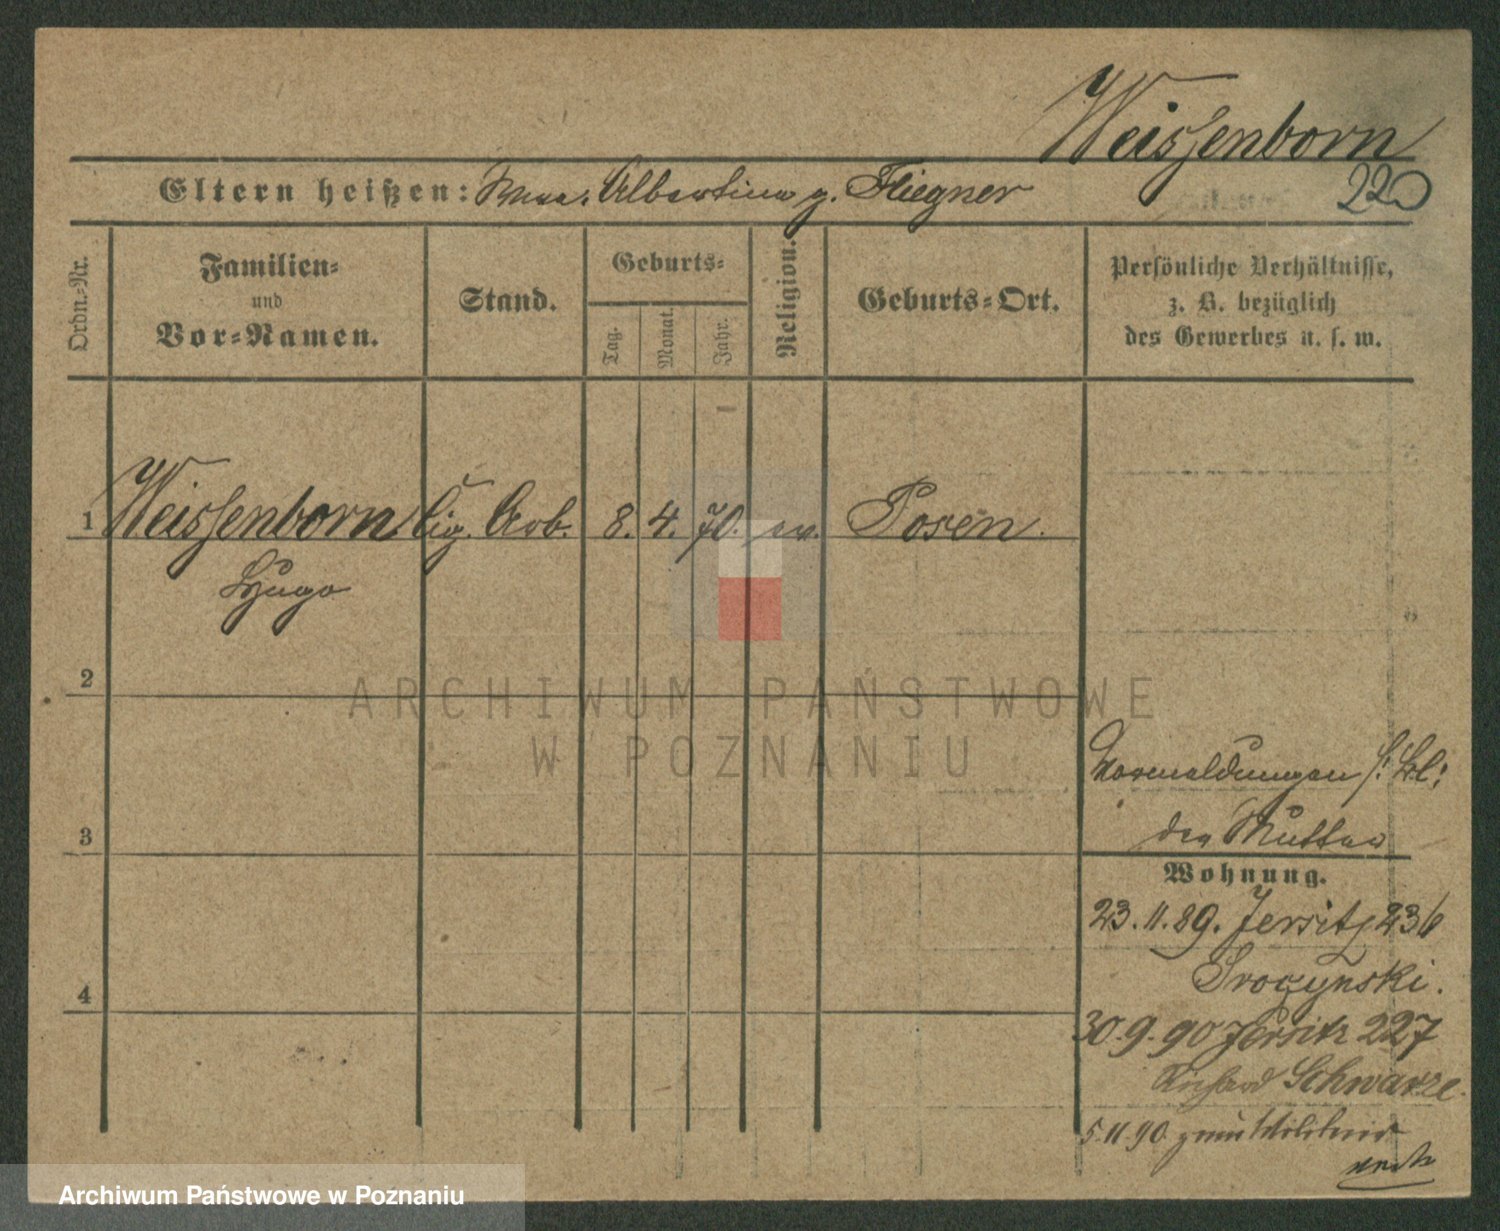 Weissenborn
220
Eltern heißen: Albertine g. Fliegner
Ordn.-Nr.
Familien-
und
Vor-Namen.
Stand.
Geburts-
Tag.
Monat.
Jahr.
Religion.
Geburts-Ort.
Persönliche Verhältnisse,
z. B. bezüglich
des Gewerbes u. s. w.
1 Weissenborn Cig. Arb. 8. 4. 70. ev. Posen.
Hugo
2
ARCHIWUM PAŃSTWOWE
W POZNANIU
Vormeldungen s. Bl.
3
der Mutter
Wohnung.
23.11.89. Jersitz 236
Sroczynski.
4
30.9.90 Jersitz 227
Richard Schwarze.
5.11.90 zum Militair
Archiwum Państwowe w Poznaniu